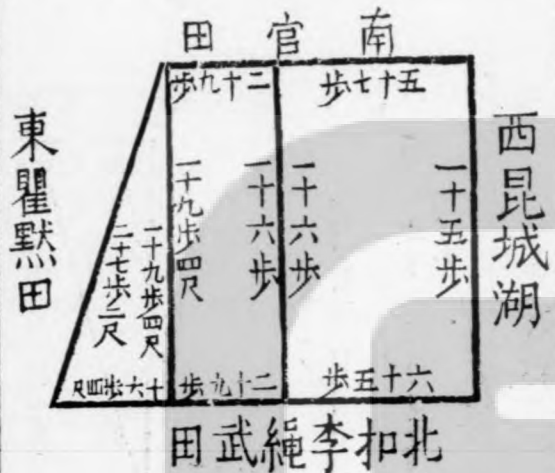 南官田
五十七歩
二十九歩
西昆城湖
一十五歩
一十六歩
一十六歩
一十九歩四尺
一十九歩四尺
二十七歩二尺
東瞿黙田
六十五歩
二十九歩
十六歩四尺
北扣李繩武田